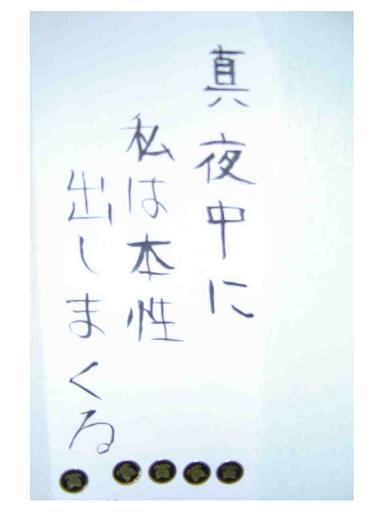 真夜中に
私は本性
出しまくる